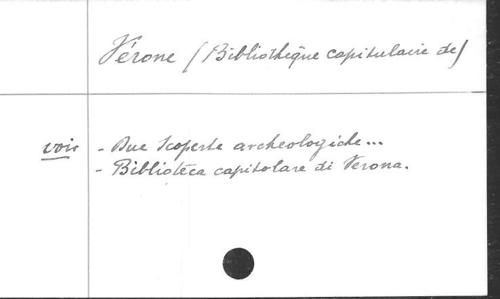 Vérone (Bibliothèque capitulaire de)
voir - Due Scoperte archeologiche...
- Biblioteca capitolare di Verona.